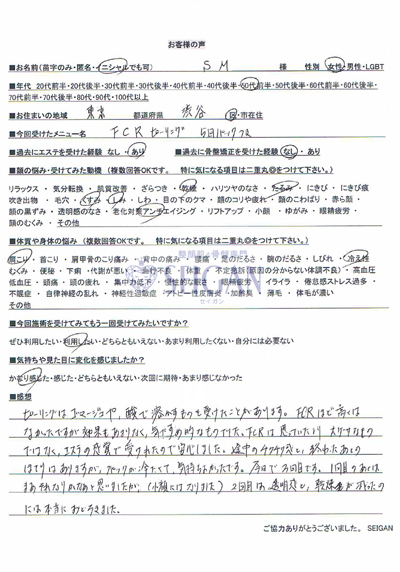 お客様の声
■お名前(苗字のみ・匿名・イニシャルでも可) S M 様 性別 女性・男性・LGBT
■年代 20代前半・20代後半・30代前半・30代後半・40代前半・40代後半・50代前半・50代後半・60代前半・60代後半・
70代前半・70代後半・80代・90代・100代以上
■お住まいの地域 東京 都道府県 渋谷 区・市在住
■今回受けたメニュー名 FCR ピーリング 5回パック
■過去にエステを受けた経験 なし・あり ■過去に骨盤矯正を受けた経験 なし・あり
■顔の悩み・受けてみた動機(複数回答OKです。 特に気になる項目は二重丸◎をつけて下さい。)
リラックス・気分転換・肌質改善・ざらつき・乾燥・ハリツヤのなさ・たるみ・にきび・にきび痕
吹き出物・毛穴・くすみ・しみ・しわ・目の下のクマ・顔のコリや疲れ・顔のこわばり・赤ら顔
顔の黒ずみ・透明感のなさ・老化対策アンチエイジング・リフトアップ・小顔・ゆがみ・眼精疲労・
顔のむくみ・その他
■体質や身体の悩み(複数回答OKです。 特に気になる項目は二重丸◎をつけて下さい。)
肩こり・首こり・肩甲骨のこり痛み・背中の痛み・腰痛・足のだるさ・腕のだるさ・しびれ・冷え性
むくみ・便秘・下痢・代謝が悪い・血行不良・体重・不定愁訴(原因の分からない体調不良)・高血圧
低血圧・頭痛・頭の疲れ・集中力低下・慢性的な眠気・眼精疲労・イライラ・倦怠感ストレス過多・
不眠症・自律神経の乱れ・神経性過敏症・アトピー性皮膚炎・加齢臭・薄毛・体毛が濃い
その他
SEIGAN
セイガン
■今回施術を受けてみてもう一回受けてみたいですか?
ぜひ利用したい・利用したい・どちらともいえない・あまり利用したくない・自分には必要ない
■気持ちや見た目に変化を感じましたか?
かなり感じた・感じた・どちらともいえない・次回に期待・あまり感じなかった
■感想
ピーリングはエコマージュや、酸で溶かすものを受けたことがあります。FCRほど痛くは
なかったですが効果もあまりなく、気やすめ的なものでした。FCRは思っていたより大げさなもの
ではなく、エステの感覚で受けられたので安心しました。途中のチクチク感と、終わったあとの
ほてりはありますが、パックが冷たくて、気持ちよかったです。今日で2回目です。1回目のあとは
まあそれなりかなあと思いましたが、(小顔にはなりました)2回目は、透明感と、乾燥が減ったの
には本当におどろきました。
ご協力ありがとうございました。 SEIGAN